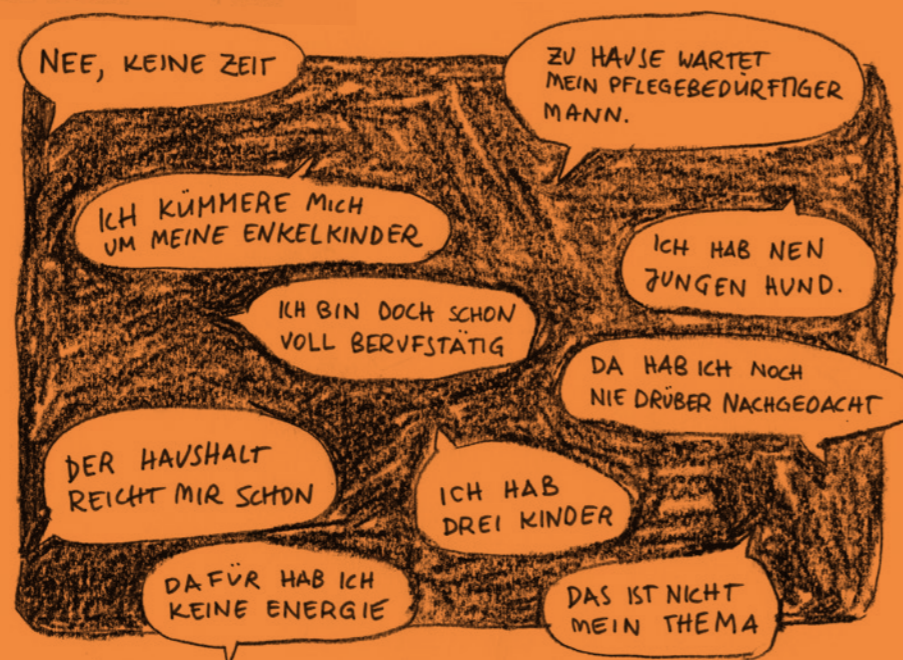 NEE, KEINE ZEIT
ZU HAUSE WARTET
MEIN PFLEGEBEDÜRFTIGER
MANN.
ICH KÜMMERE MICH
UM MEINE ENKELKINDER
ICH HAB NEN
JUNGEN HUND.
ICH BIN DOCH SCHON
VOLL BERUFSTÄTIG
DA HAB ICH NOCH
NIE DRÜBER NACHGEDACHT
DER HAUSHALT
REICHT MIR SCHON
ICH HAB
DREI KINDER
DAFÜR HAB ICH
KEINE ENERGIE
DAS IST NICHT
MEIN THEMA